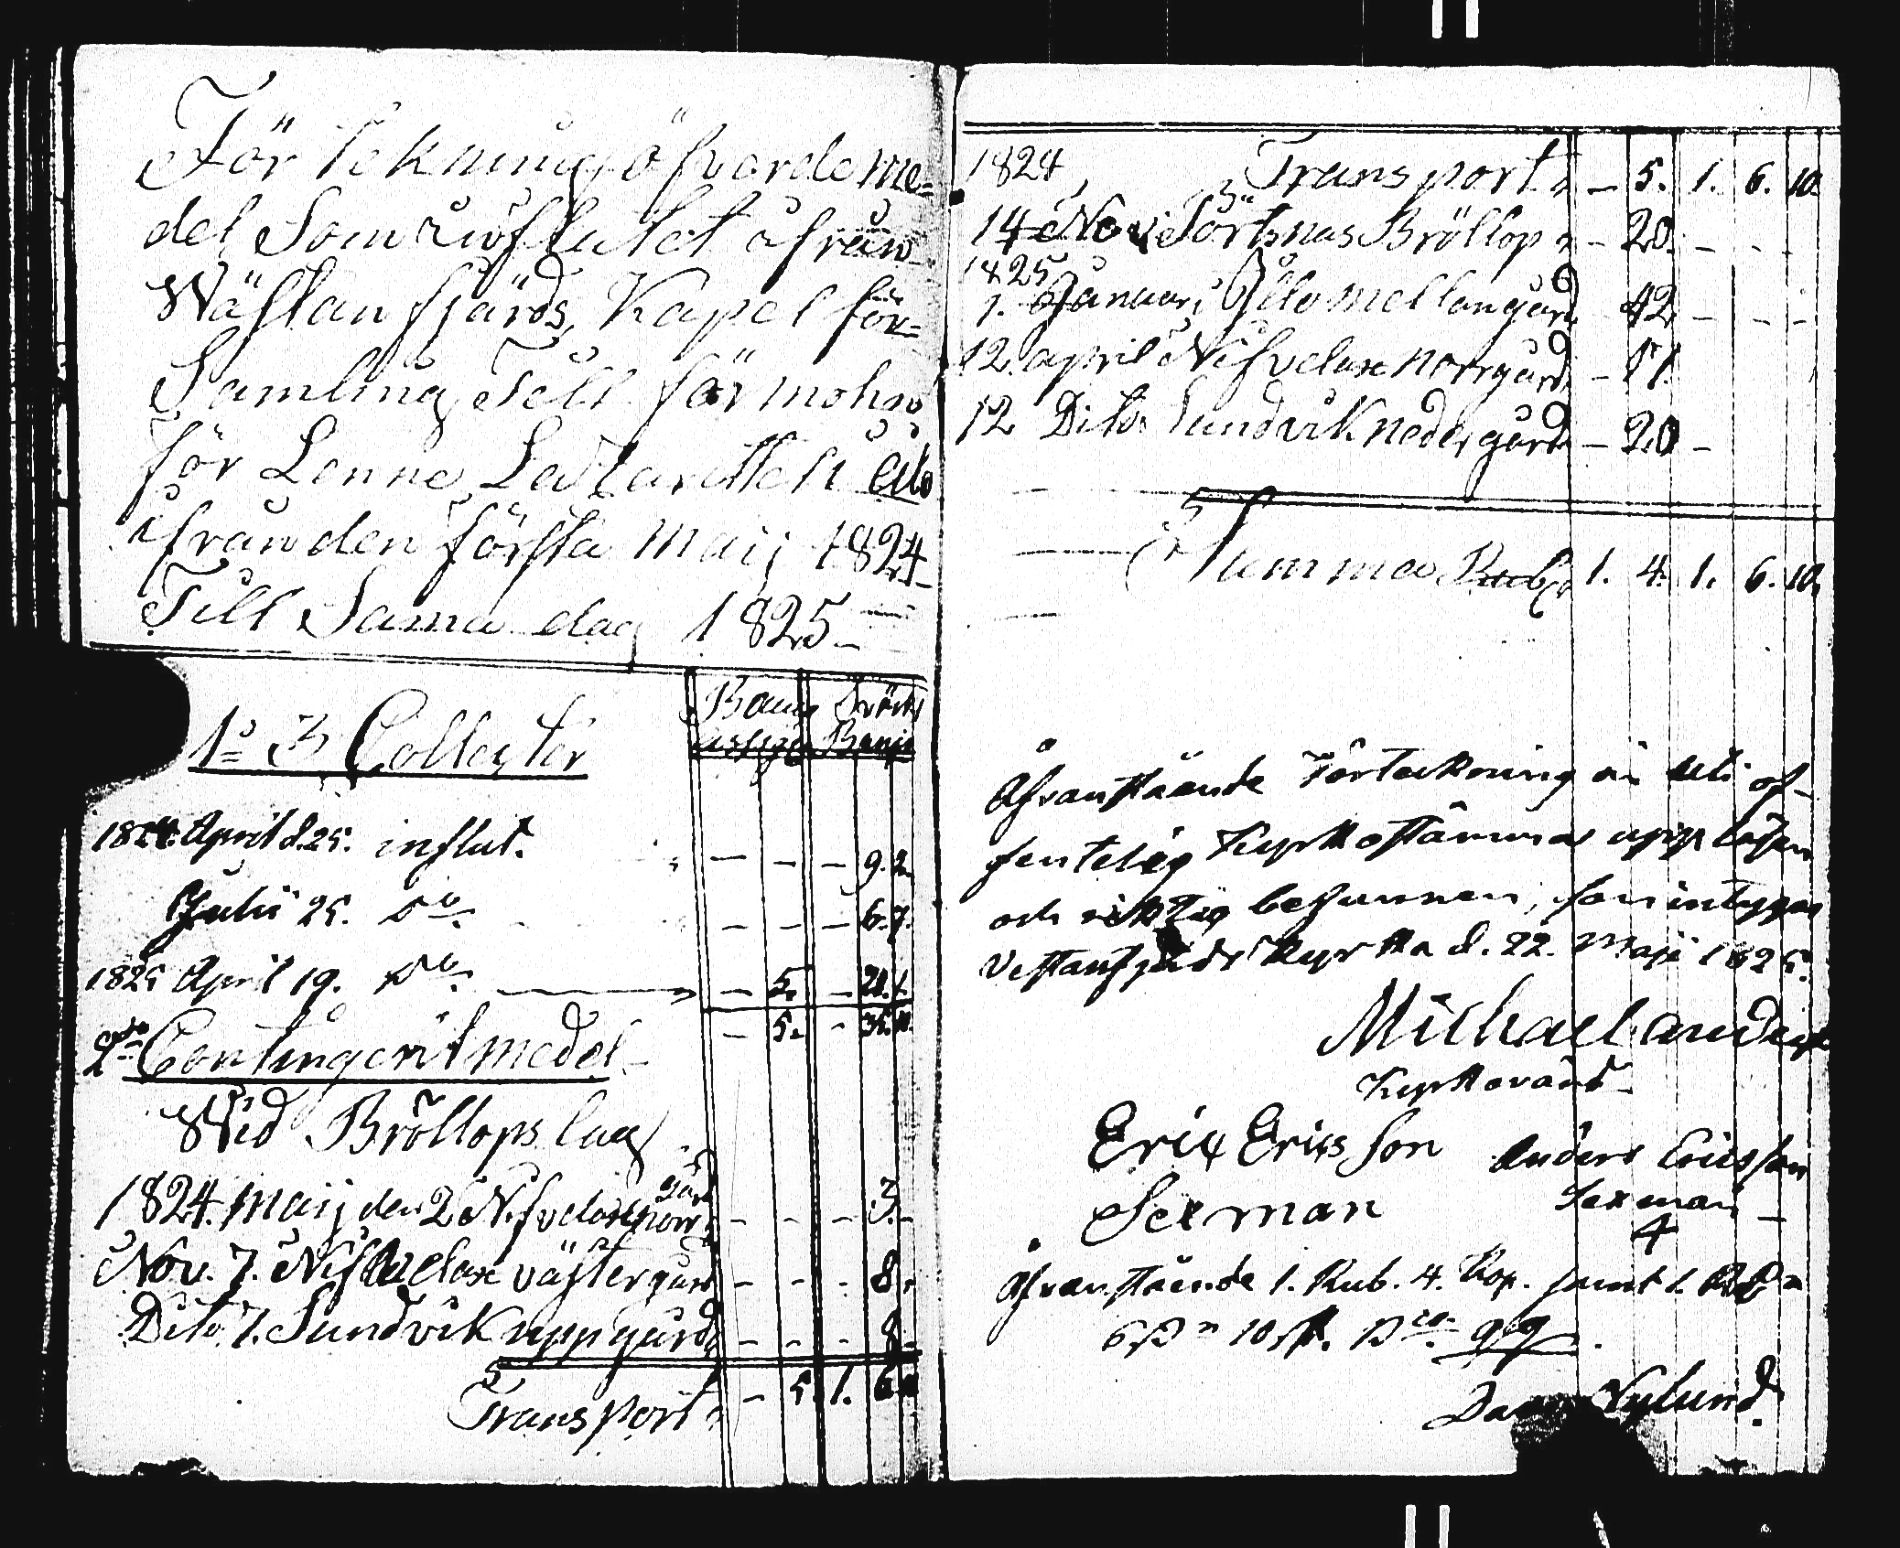 För tekning öfver de me-
del Som influtet ifrån
Wästanfjärds Kapel för-
Samling Till förmohn
för Lenne Lasarettet i Åbo
ifrån den första Maij 1824
Till Sama dag 1825
Banco assigr Swänskt Banco
1o 3 Collecter
1824. April d. 25. influt. - - - 9. 2.
Julii 25. Do - - - 6. 7.
1825 April 19. Do - 5. - 20. 1.
- 5. - 35. 10.
2do Contingent medel
Wid Bröllops lag
1824. Maij den 2 Nifvelax norrgård - - - 3. -
Nov. 7. Nifvelax västergård - - - 8.
Dito 7. Sundvik uppgård - - - 8.
Transport - 5. 1. 6. 10
1824 Transport - 5. 1. 6. 10.
14 Nov Törtsnas Bröllop - 20. - - -
1825
1. Januari Gilo mellangård 42 - - -
12. april Nifvelax norrgård - 17.
12 Dito Sundvik nedergård - 20 -
Summa Rub 1. 4. 1. 6. 10.
Åfvanstående Förteckning är uti of-
fentelig Kyrkostämma uppläsen
och riktig befunnen, som intygas
Vestanfjärds Kyrka d. 22. Maji 1825.
Michael
Kyrkovärd
Eric Ericsson Anders Ericsson
Sexman Sexman
Åfvanstående 1. Rub. 4. Kop. samt 1. Rd
6 10
Nylund.